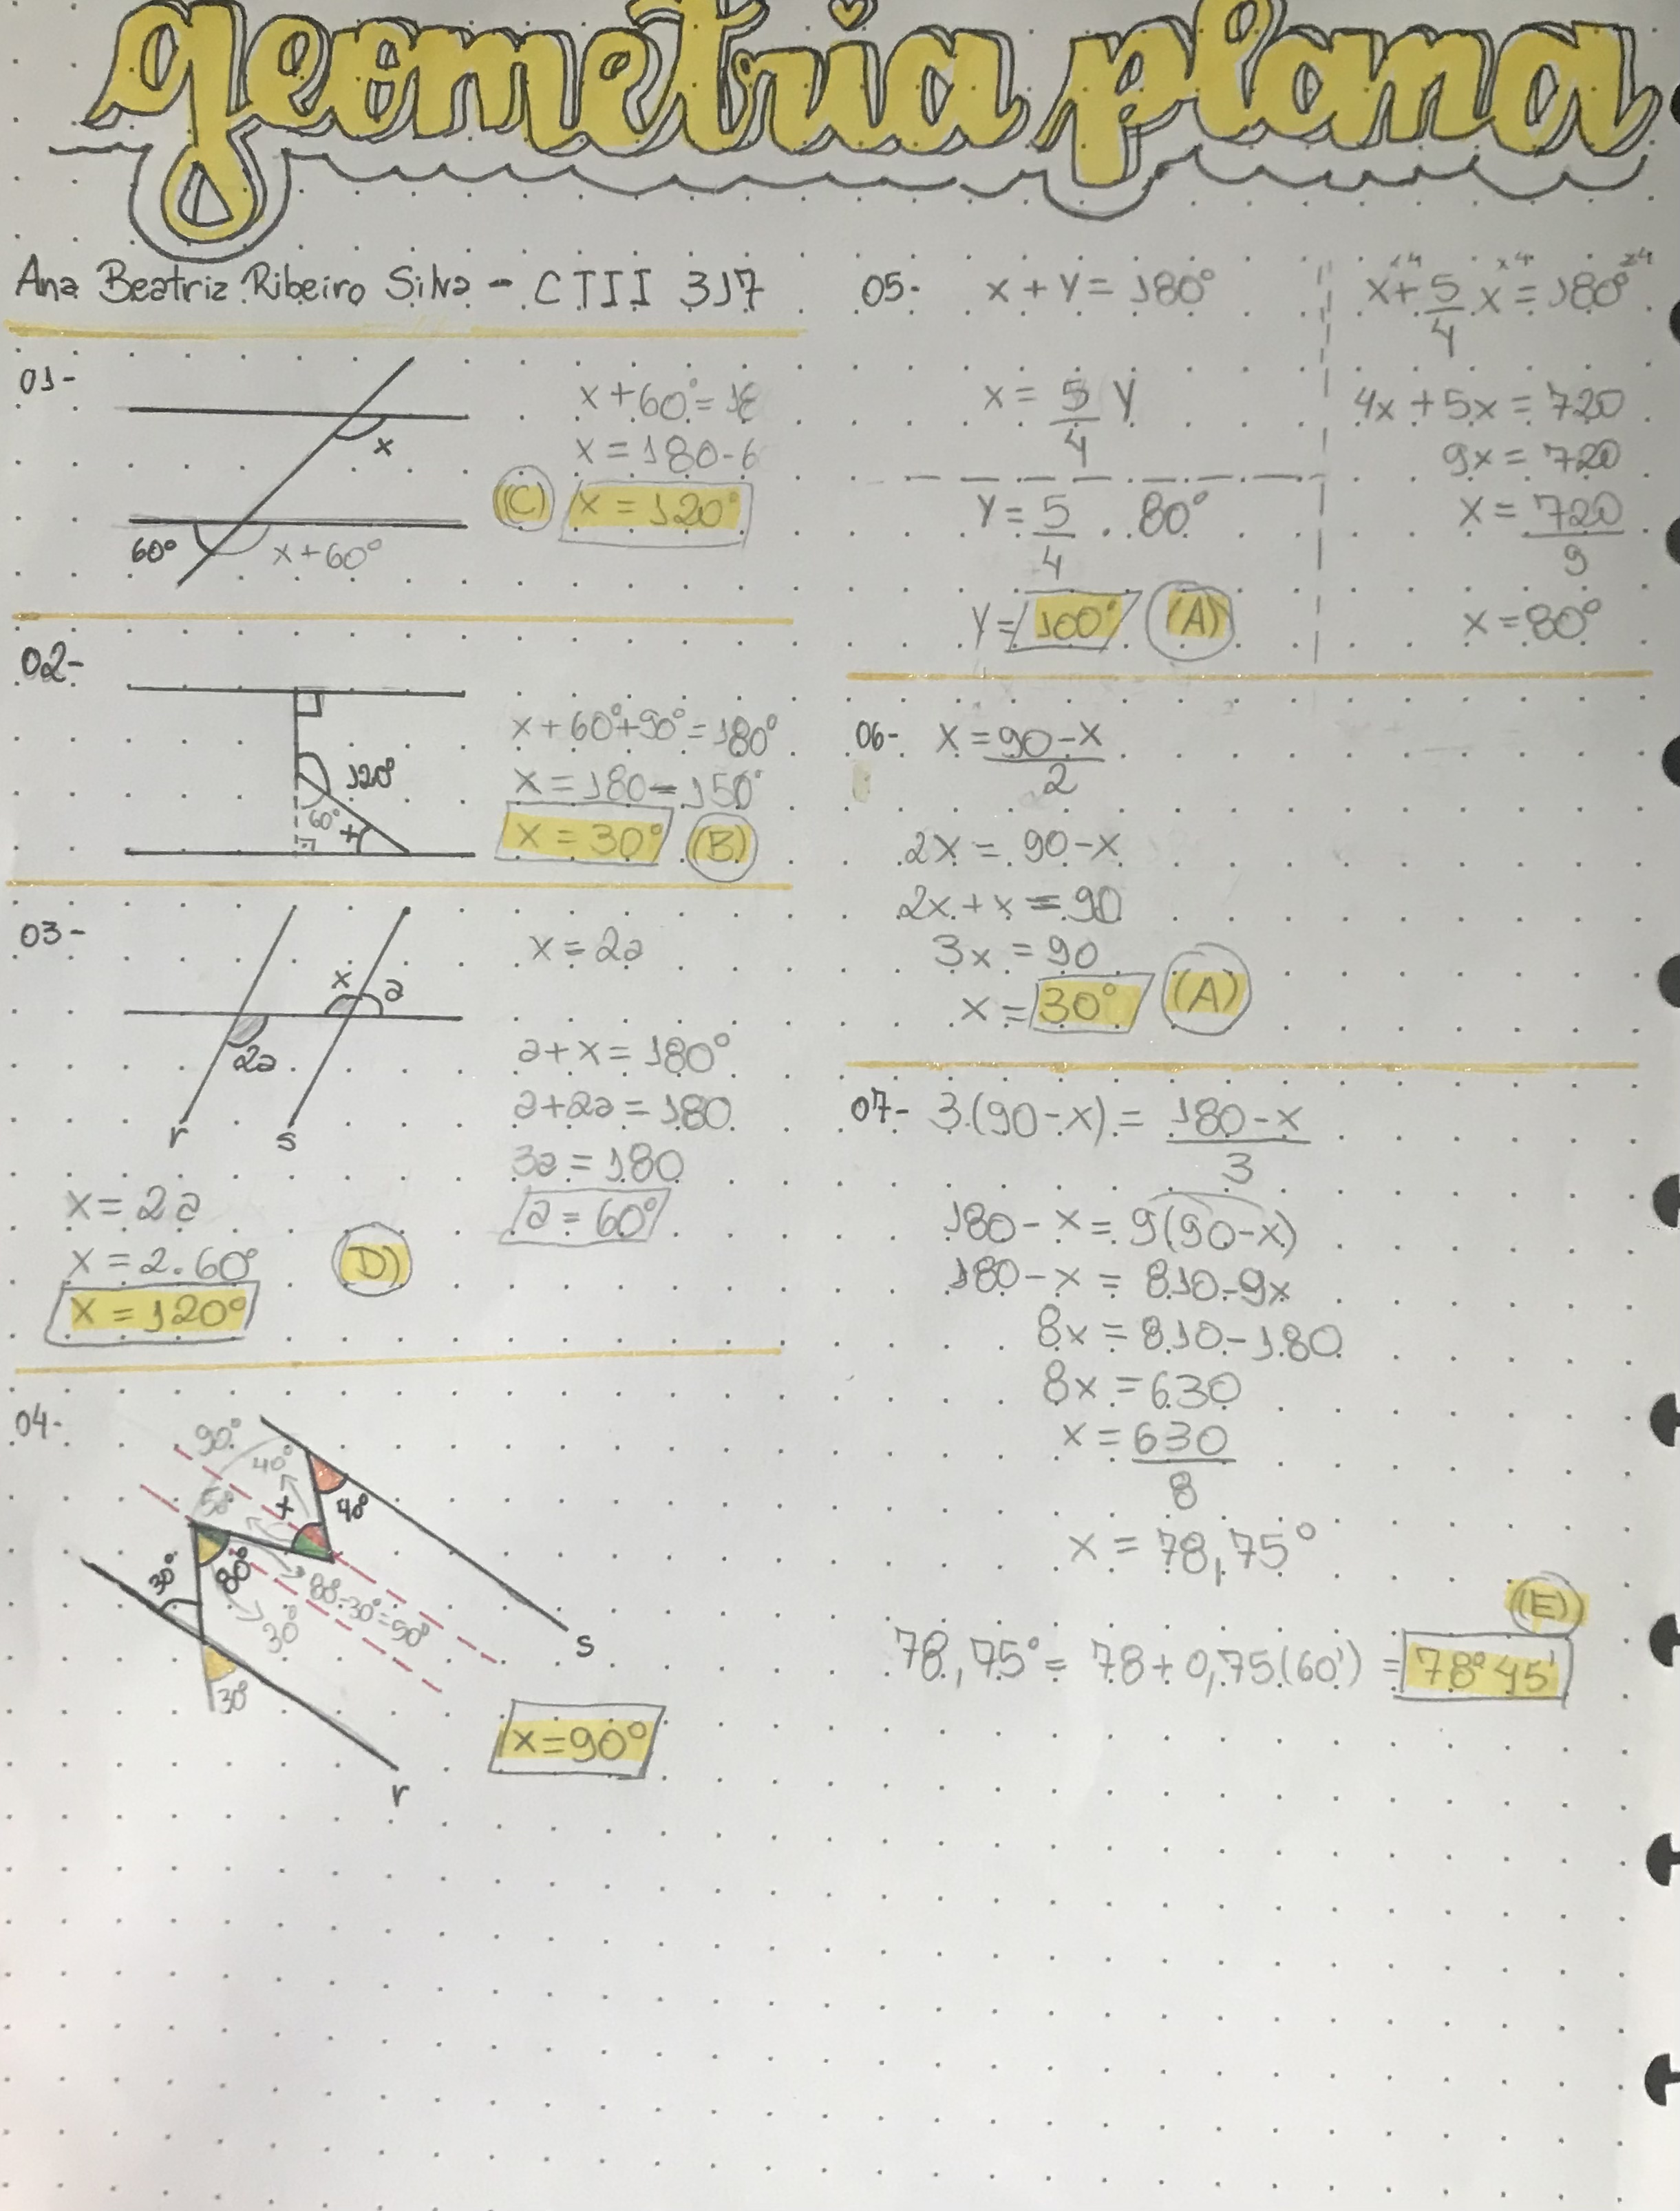 geometria plana
Ana Beatriz Ribeiro Silva - CTII 317
01-
x
60°
x+60°
x+60°=18
x=180-6
(C) x=120°
02-
120°
60°
x
x+60°+90°=180°
x=180-150°
x=30° (B)
03-
x a
2a
r s
x=2a
a+x=180°
a+2a=180
3a=180
a=60°
x=2a
x=2.60°
x=120°
D)
04-
90°
40°
50°
x
40°
30°
80°
80-30°=50°
30°
30°
s
r
x=90°
05- x+y=180°
x=5/4 y
y=5/4 . 80°
y=100° (A)
x4 x4 x4
x+5/4 x=180°
4x+5x=720
9x=720
x=720/9
x=80°
06- x=90-x/2
2x=90-x
2x+x=90
3x=90
x=30° (A)
07- 3.(90-x)=180-x/3
180-x=9(90-x)
180-x=810-9x
8x=810-180
8x=630
x=630/8
x=78,75°
(E)
78,75°=78+0,75(60')=78°45'